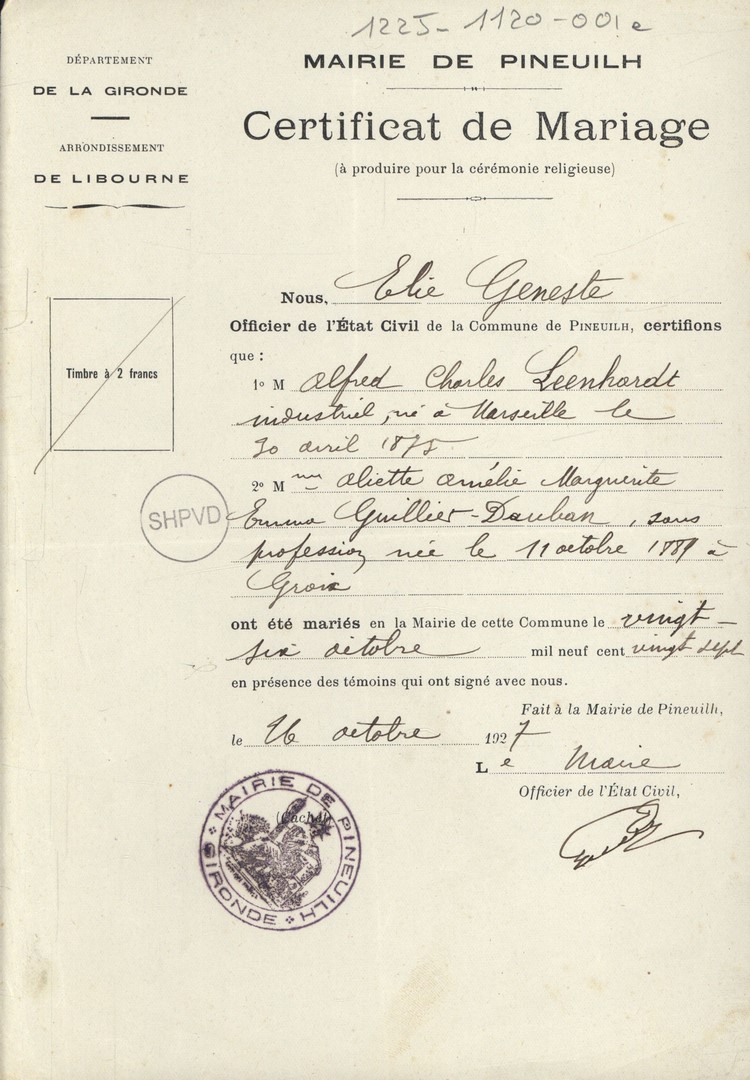 1225-1120-001e
DÉPARTEMENT
DE LA GIRONDE
ARRONDISSEMENT
DE LIBOURNE
MAIRIE DE PINEUILH
Certificat de Mariage
(à produire pour la cérémonie religieuse)
Timbre à 2 francs
Nous, Elie Geneste
Officier de l'État Civil de la Commune de PINEUILH, certifions
que :
1º M Alfred Charles Leenhardt
industriel, né à Marseille le
30 avril 1875
2º M Aliette Amélie Marguerite
SHPVD
Emma Guillier-Dauban, sans
profession née le 11 octobre à
ont été mariés en la Mairie de cette Commune le vingt-
six octobre mil neuf cent vingt sept
en présence des témoins qui ont signé avec nous.
Fait à la Mairie de Pineuilh,
le 26 octobre 1927
Le Maire
Officier de l'État Civil,
(Cachet)
MAIRIE DE PINEUILH
GIRONDE